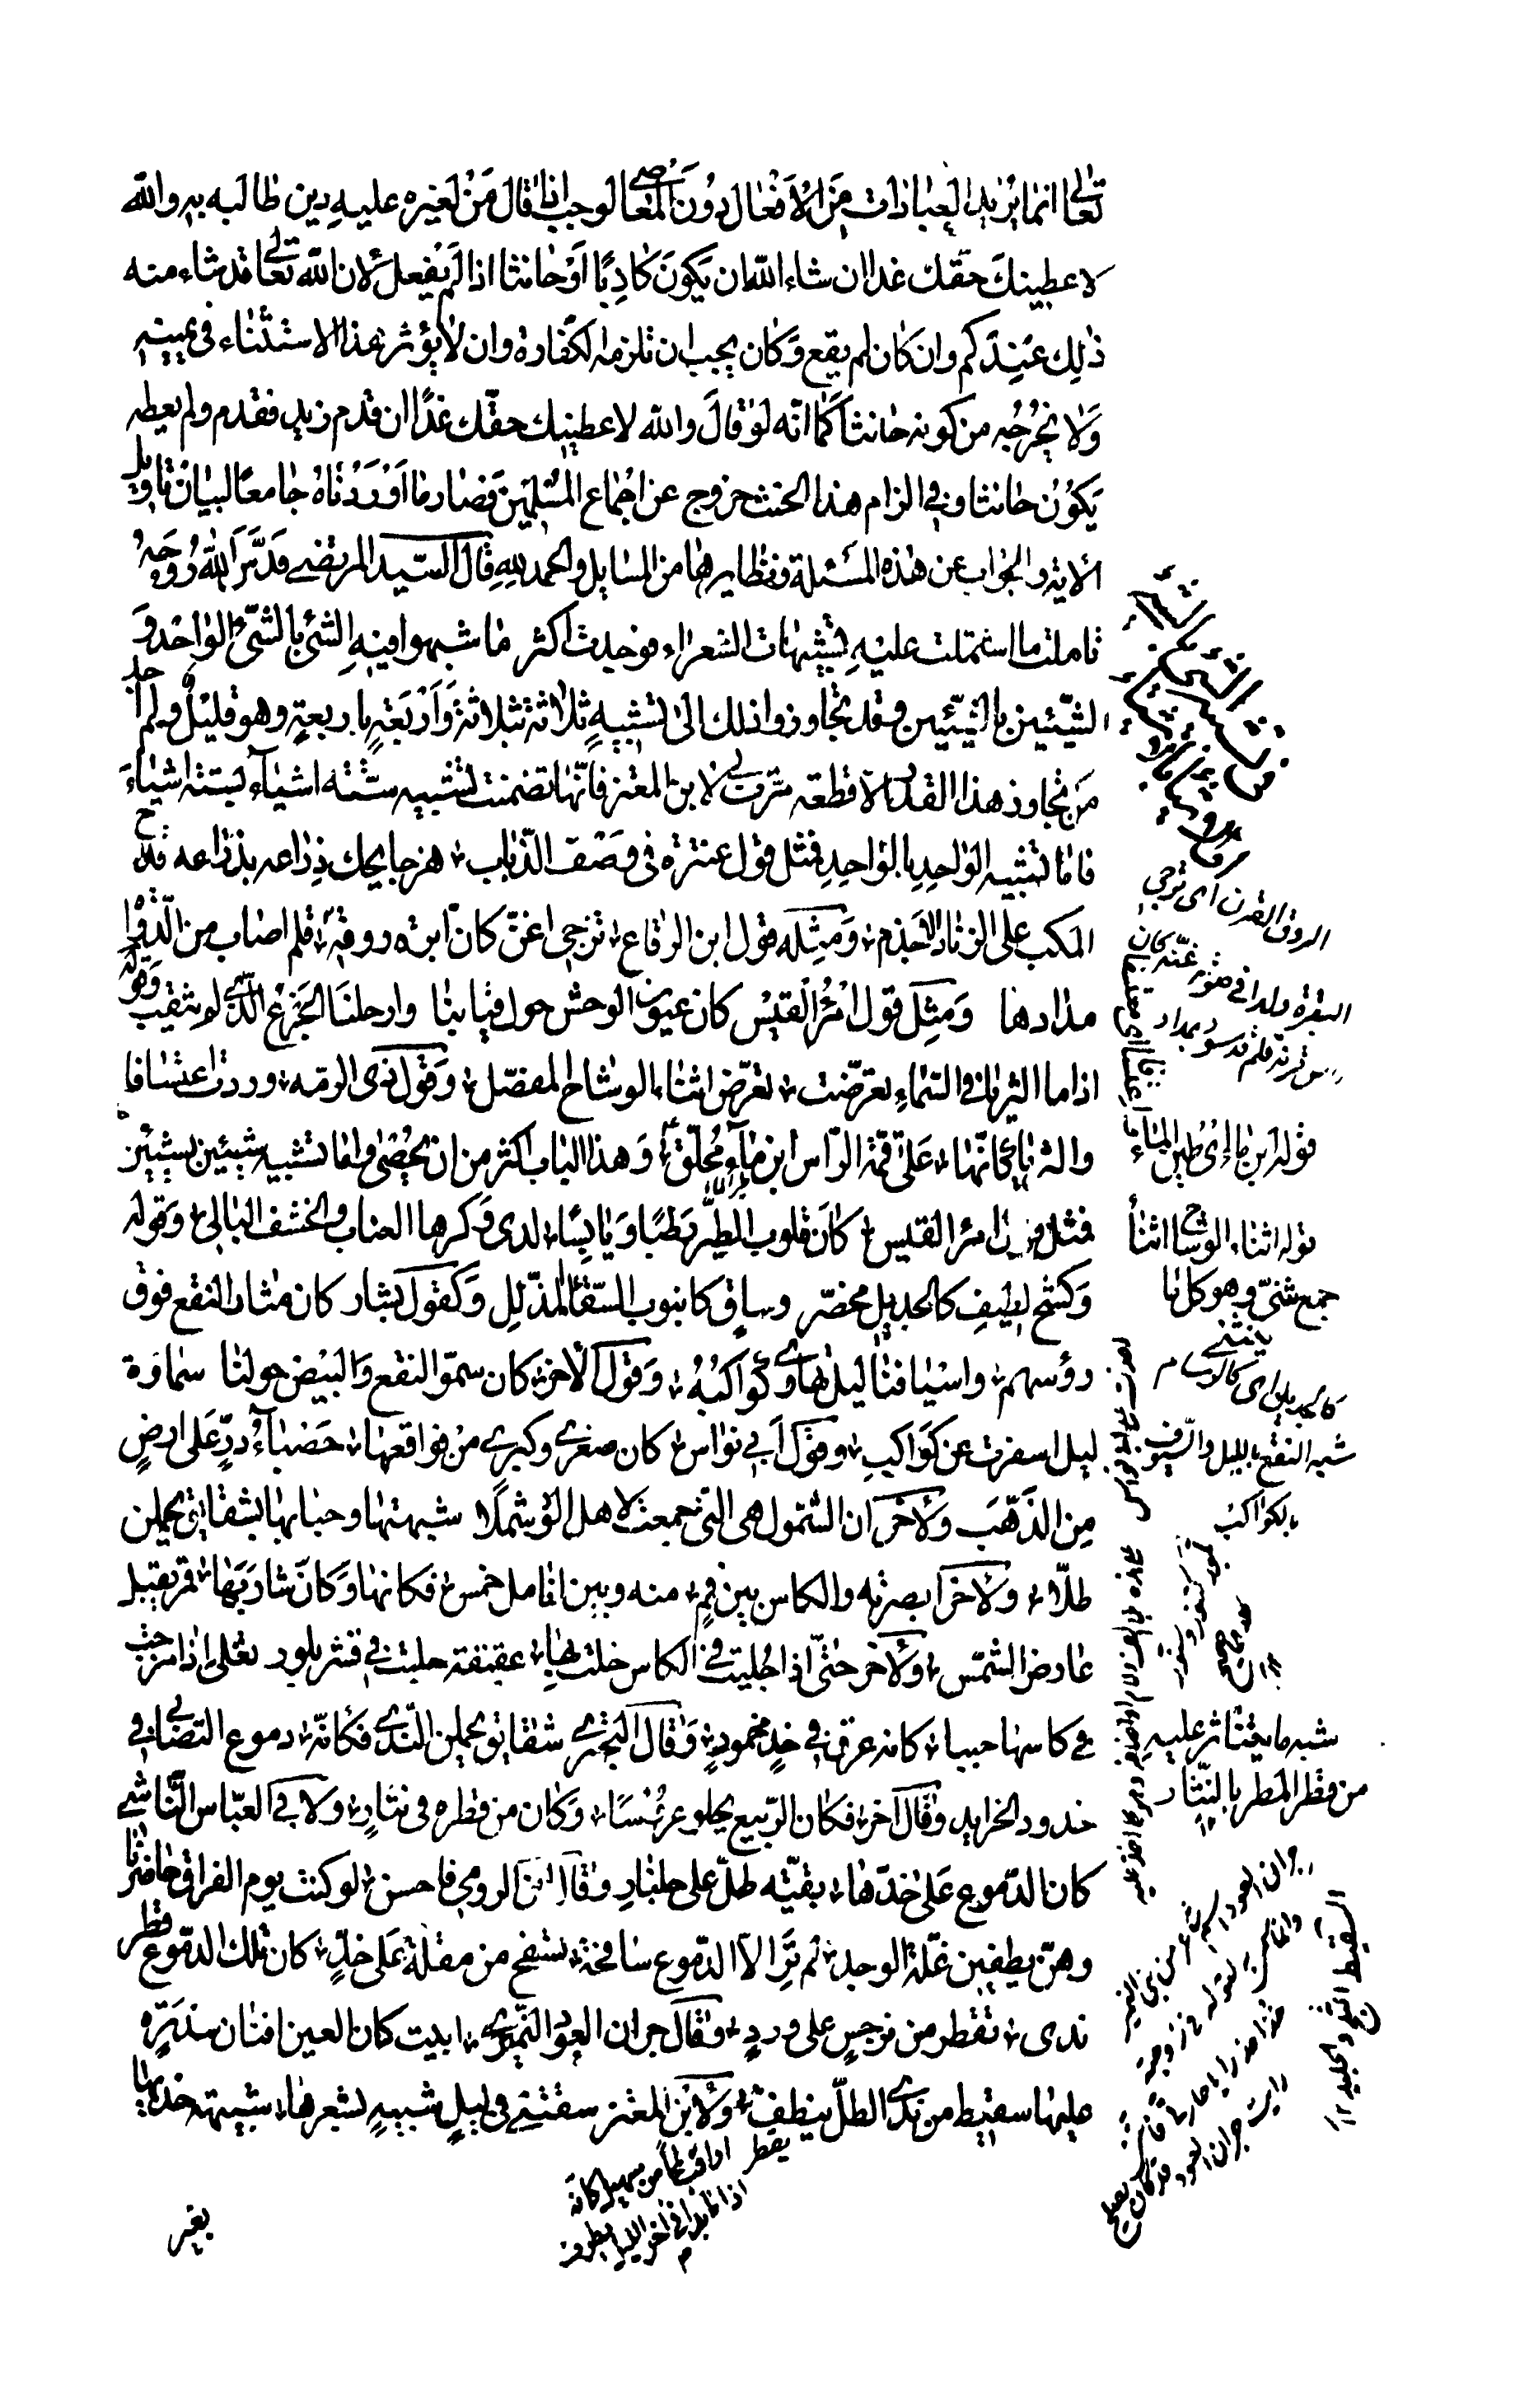 تعالى انما يريد العبادات من الافعال دون المعاصى لوجب اذا قال من لغيره عليه دين طالبه به والله
لاعطينك حقك غدا ان شاء الله ان يكون كاذبا او حانثا اذا لم يفعل لان الله تعالى قد شاء منه
ذلك عندكم وان كان لم يقع وكان يجب ان تلزمه الكفارة وان لا يؤثر هذا الاستثناء فى يمينه
ولا يخرجه من كونه حانثا كما انه لو قال والله لاعطينك حقك غدا ان قدم زيد فقدم ولم يعطه
يكون حانثا وفى الزام هذا الحنث خروج عن اجماع المسلمين فصار ما اوردناه جامعا لبيان تاويل
الاية والجواب عن هذه المسئلة ونظايرها من المسايل والحمد لله قال السيد المرتضى قدس الله روحه
تاملت ما اشتملت عليه تشبيهات الشعراء فوجدت اكثر ما شبهوا فيه الشئ بالشئ الواحد و
الشيئين بالشيئين وقد تجاوزوا ذلك الى تشبيه ثلاثة بثلاثة واربعة باربعة وهو قليل ولم اجد
من تجاوز هذا القدر الا قطعه مرت بى لابن المعتز فانها تضمنت تشبيه ستة اشياء بستة اشياء
فاما تشبيه الواحد بالواحد فمثل قول عنترة فى وصف الذباب هزجا يحك ذراعه بذراعه قدح
المكب على الزناد الاجذم ومثله قول ابن الرقاع تزجى اغن كان ابرة روقه قلم اصاب من الدواة
مدادها ومثل قول امرء القيس كان عيون الوحش حول خبائنا وارحلنا الجزع الذى لم يثقب وقوله
اذا ما الثريا فى السماء تعرضت تعرض اثناء الوشاح المفصل وقول ذى الرمه وردت اعتسافا
والثريا كانها على قمة الراس ابن ماء محلق وهذا الباب اكثر من ان يحصى واما تشبيه شيئين بشيئين
فمثل قول امرء القيس كان قلوب الطير رطبا ويابسا لدى وكرها العناب والحشف البالى وقوله
وكشح لطيف كالجديل مخصر وساق كانبوب السقى المذلل وكقول بشار كان مثار النقع فوق
رؤسهم واسيافنا ليل تهاوى كواكبه وقول الاخر كان سمو النقع والبيض حولنا سماوة
ليل اسفرت عن كواكب وقول ابى نواس كان صغرى وكبرى من فواقعها حصباء در على ارض
من الذهب ولاخر ان الشمول هى التى جمعت لاهل الود شملا شبهتها وحبابها بشقايق يحملن
طلا ولاخر ابصرته والكاس بين فم منه وبين انامل خمس فكانها وكان شاربها قمر يقبل
عارض الشمس ولاخر حتى اذا جليت فى الكاس خلت بها عقيقة جليت فى قشر بلور تعلى اذا مزجت
فى كاسها حببا كانه عرق فى خد مخمود وقال البحترى شقايق يحملن الندى فكانه دموع التصابى فى
خدود الخرايد وقال اخر فكان الربيع يجلو عروسا وكان من قطره فى نثار ولابى العباس الناشى
كان الدموع على خدها بقية طل على جلنار وقال ابن الرومى فاحسن لو كنت يوم الفراق حاضرنا
وهن يطفين غلة الوجد لم تر الا الدموع سافحة تسفح من مقلة على خد كان تلك الدموع قطر
ندى تقطر من نرجس على ورد وقال جران العود النميرى ابيت كان العين افنان سدرة
عليها سقيط من ندى الطل ينطف ولابن المعتز سقتنى فى ليل شبيه بشعرها شبيهة خديها
بغير
الروق القرن اى تزجى
البقرة ولدا فى صوته غنة كان
قوله ابن ماء اى طير الماء
قوله اثناء الوشاح اثناء
جمع ثنى وهو كل ما
ينثنى
شبه النقع بالليل والسيوف
بالكواكب
شبه ما يتناثر عليه
من قطر المطر بالنثار
السقيط الثلج والجليد ١٢